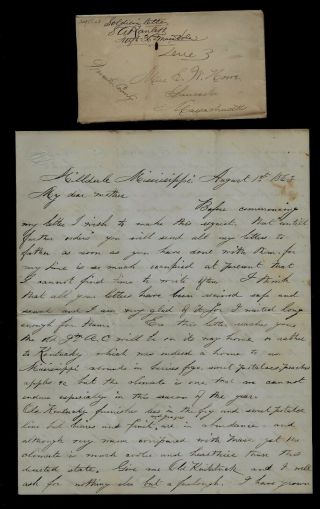 Soldiers letter
Due 3
Mrs E. W. Howe
Lancaster
Massachusetts
Milldale Mississippi August 1st 1863
My dear mother
Before commencing
my letter I wish to make this request. that until
further orders you will send all my letters to
father as soon as you have done with them, for
my time is so much occupied at present that
I cannot find time to write often. I think
that all your letters have been received safe and
sound and I am very glad of it, for I waited long
enough for them. Ere this letter reaches you
the old 9th A.C. will be on its way home or rather
to Kentucky which was indeed a home to us
Mississippi abounds in berries figs, sweet potatoes, peaches
apples &c but the climate is one that we cannot
endure especially in this season of the year.
Old Kentucky furnishes less in the fig and sweet potatoe
line but berries and fruit are in abundance and
although very warm compared with Mass. yet its
climate is much cooler and healthier than this
deserted state. Give me Old Kentuck and I will
ask for nothing else but a furlough. I have grown